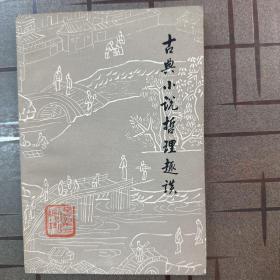 古典小说哲理趣谈